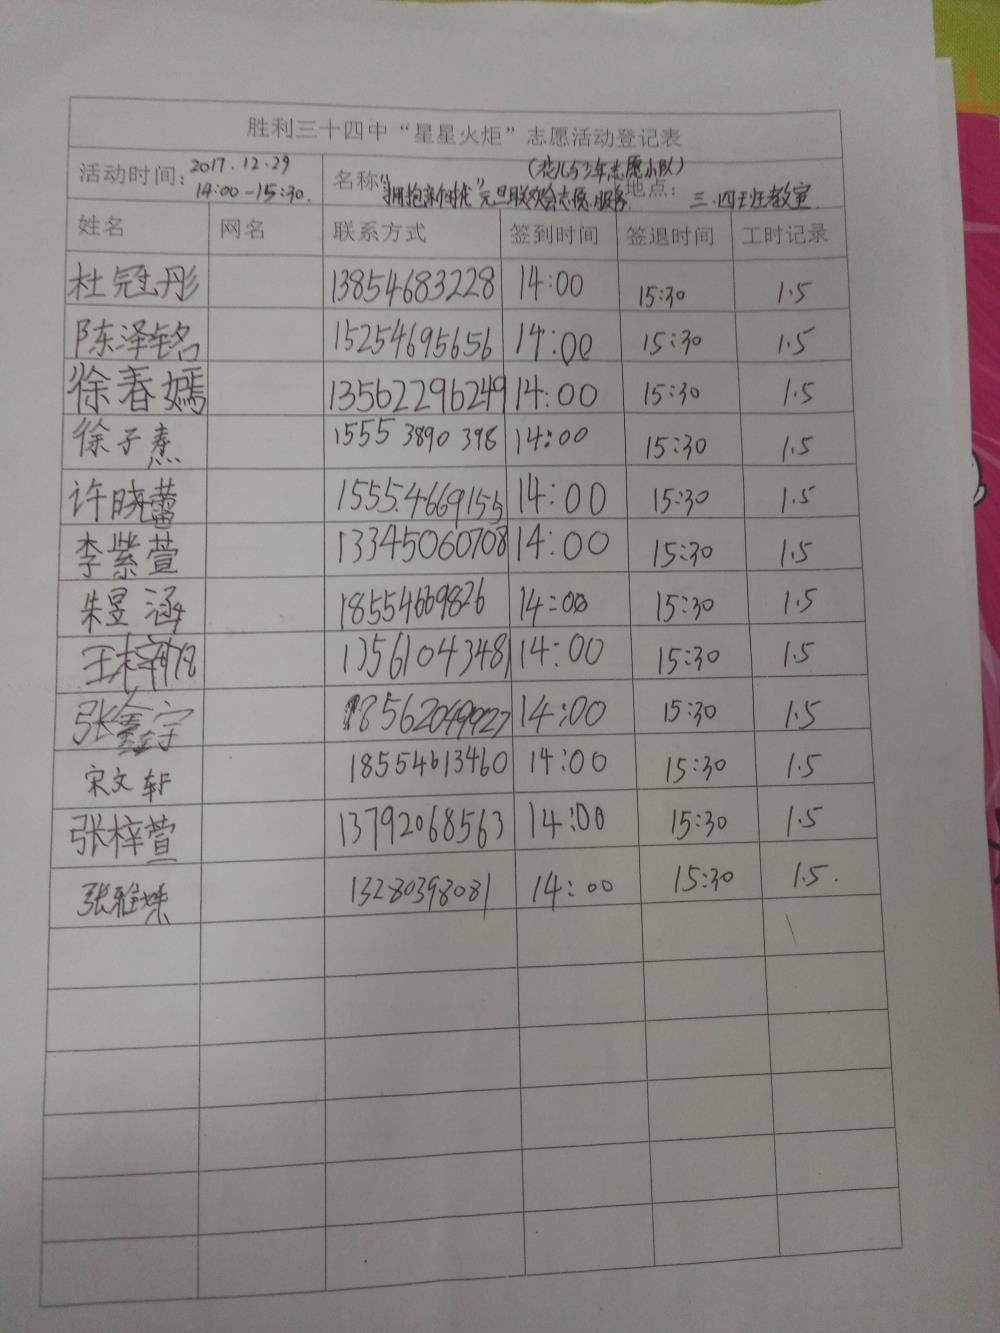 胜利三十四中“星星火炬”志愿活动登记表
活动时间: 2017.12.29 14:00-15:30. 名称“拥抱新时代”元旦联欢会志愿服务 (花儿与少年志愿小队) 地点: 三.四班教室.
姓名 网名 联系方式 签到时间 签退时间 工时记录
杜冠彤 13854683228 14:00 15:30 1.5
陈泽铭 15254695656 14:00 15:30 1.5
徐春嫣 13562296249 14:00 15:30 1.5
徐子熹 1555 3890 398 14:00 15:30 1.5
许晓蕾 1555.4669155 14:00 15:30 1.5
李紫萱 13345060708 14:00 15:30 1.5
朱昱涵 18554669826 14:00 15:30 1.5
王梓 13561043481 14:00 15:30 1.5
张鑫宇 18562049927 14:00 15:30 1.5
宋文轩 18554613460 14:00 15:30 1.5
张梓萱 13792068563 14:00 15:30 1.5
张雅 13280398081 14:00 15:30 1.5.